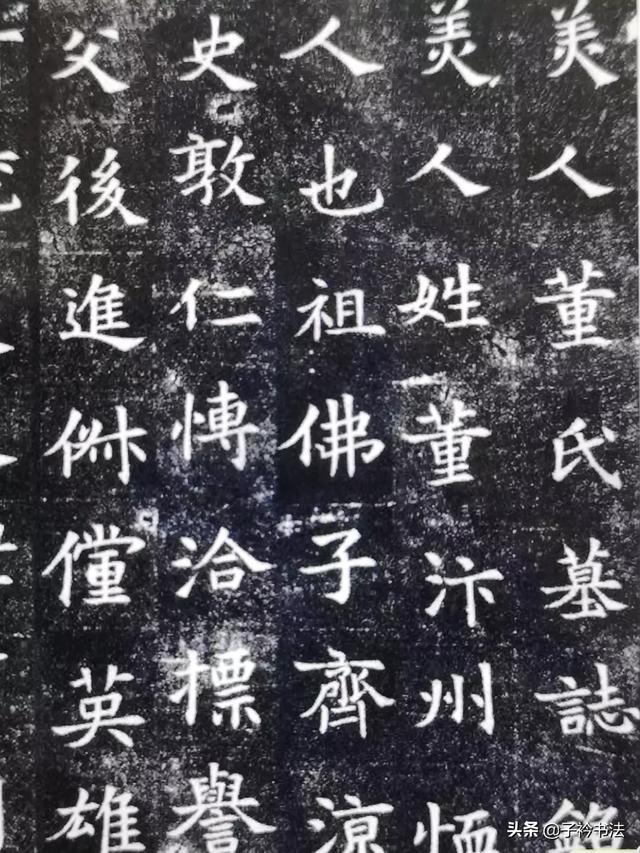 美人董氏墓誌銘
美人姓董汴州恤
人也祖佛子齊涼
史敦仁愽洽摽譽
父後進俶儻英雄
头条 @子衿书法